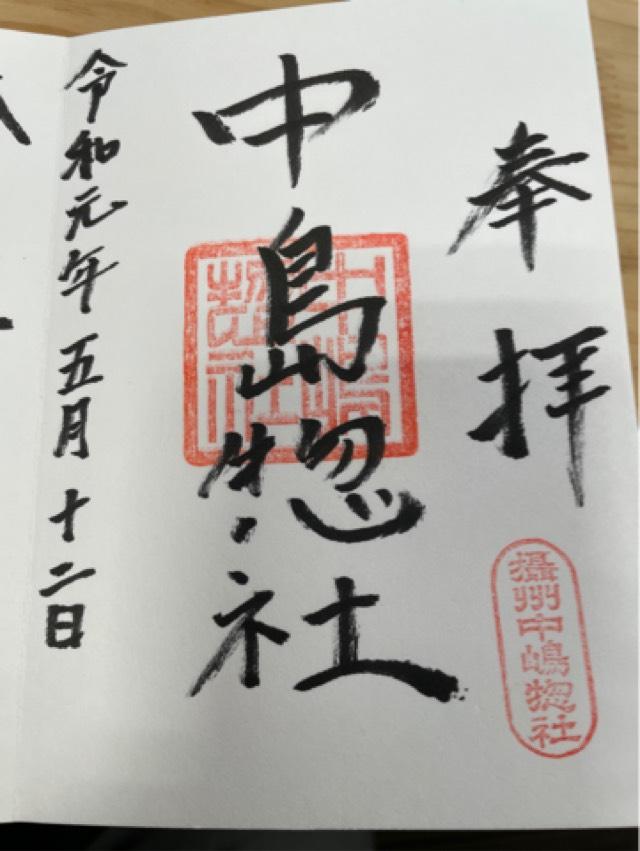 奉拝
攝州中嶋惣社
中島惣社
中嶋惣社
令和元年五月十二日